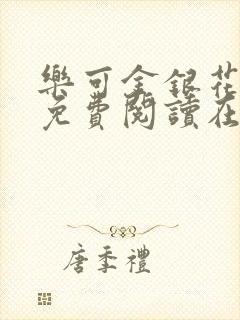 樂可金銀花
免費閱讀在
唐季禮